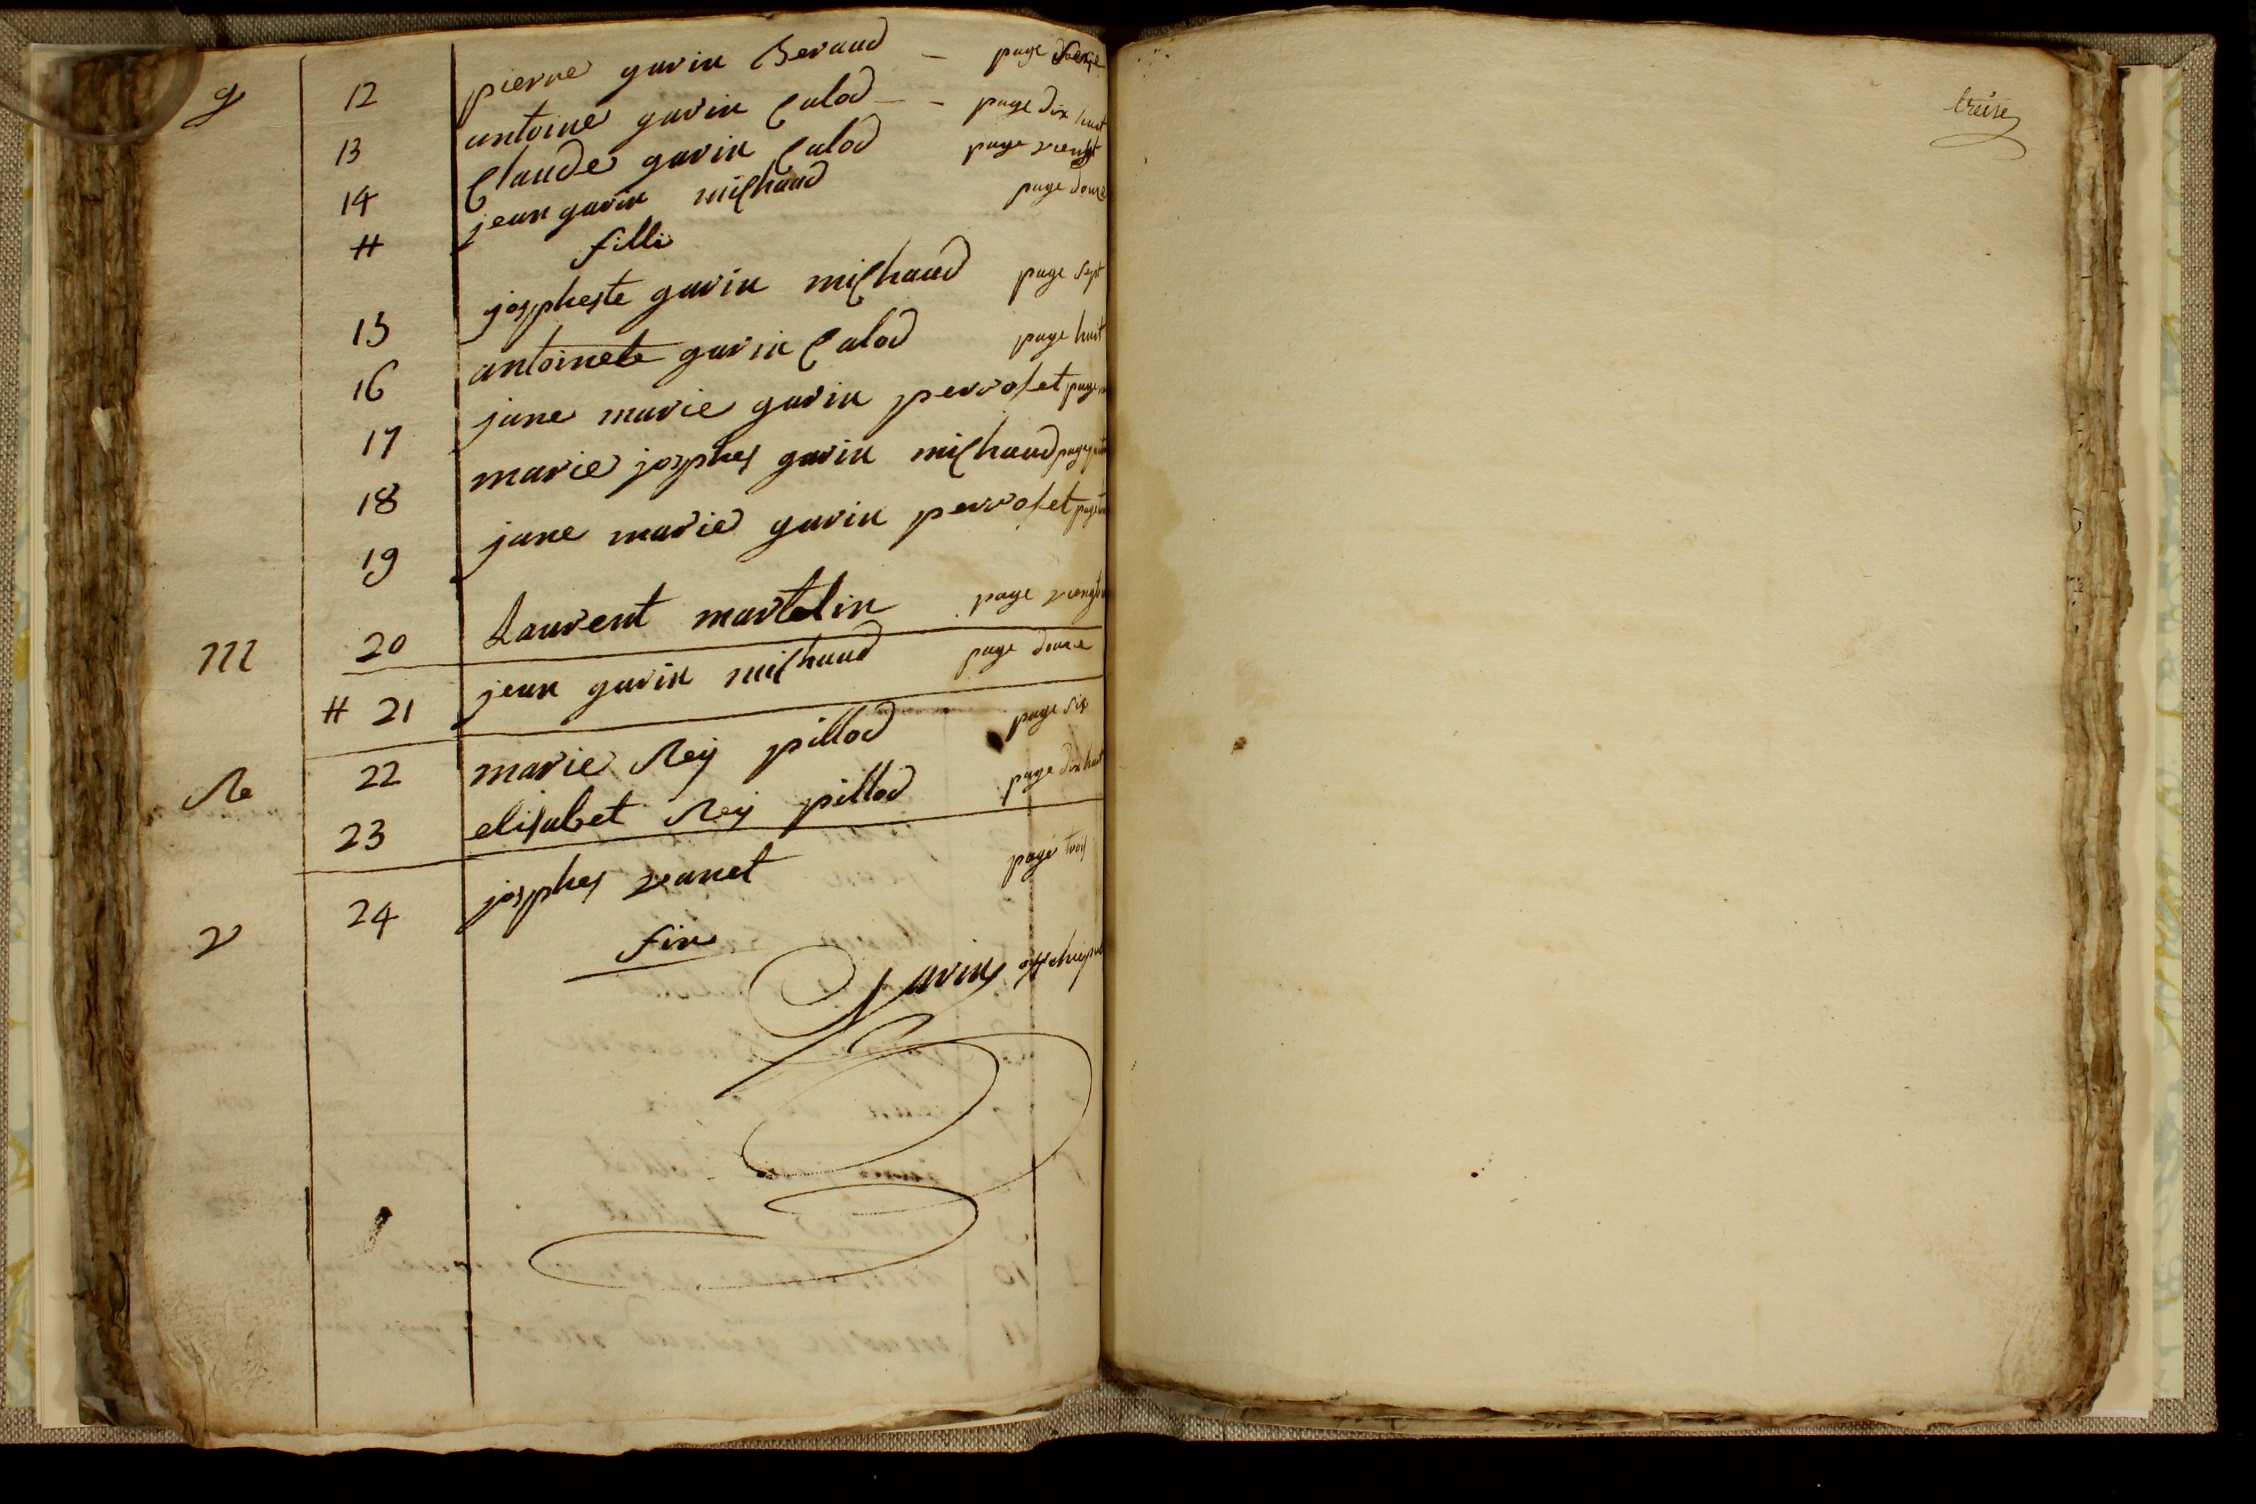 g 12 pierre gavin Beraud — page
13 antoine gavin Calod — – page dix huit
14 Claude gavin Calod page viengt
# jean gavin michaud page douze
filli
15 jospheste gavin michaud page sept
16 antoinete gavin Calod page huit
17 jane marie gavin perrosset page
18 marie josphes gavin michaud page
19 jane marie gavin perrosset page
m 20 Laurent martelin page
# 21 jean gavin michaud page douze
Re 22 marie Rey pillod page six
23 elisabet Rey pillod page dix huit
v 24 josphes veanet page trois
fin
Gavin
treise